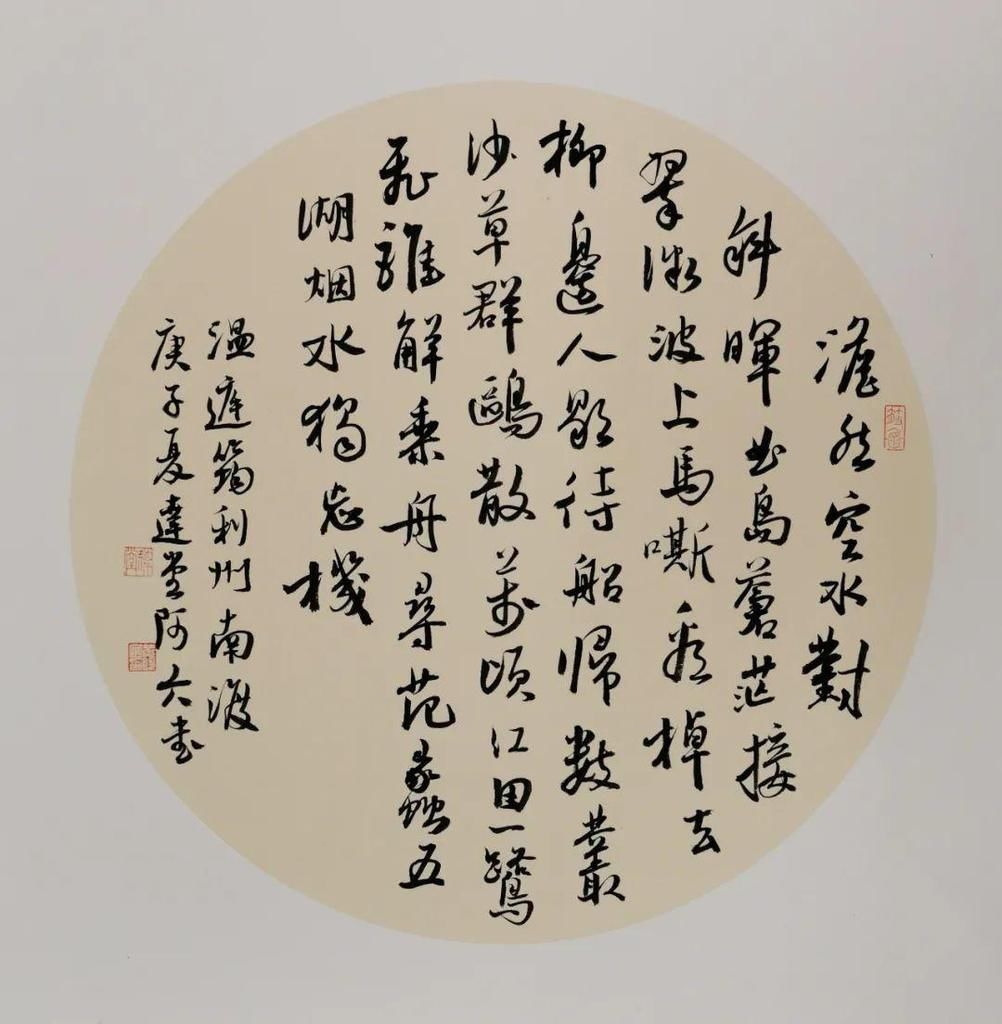 澹然空水對
斜暉曲島蒼茫接
翠微波上馬嘶看棹去
柳邊人歇待船歸數叢
沙草群鷗散萬頃江田一鷺
飛誰解乘舟尋范蠡五
湖烟水獨忘機
温庭筠利州南渡
庚子夏達堂阿六書